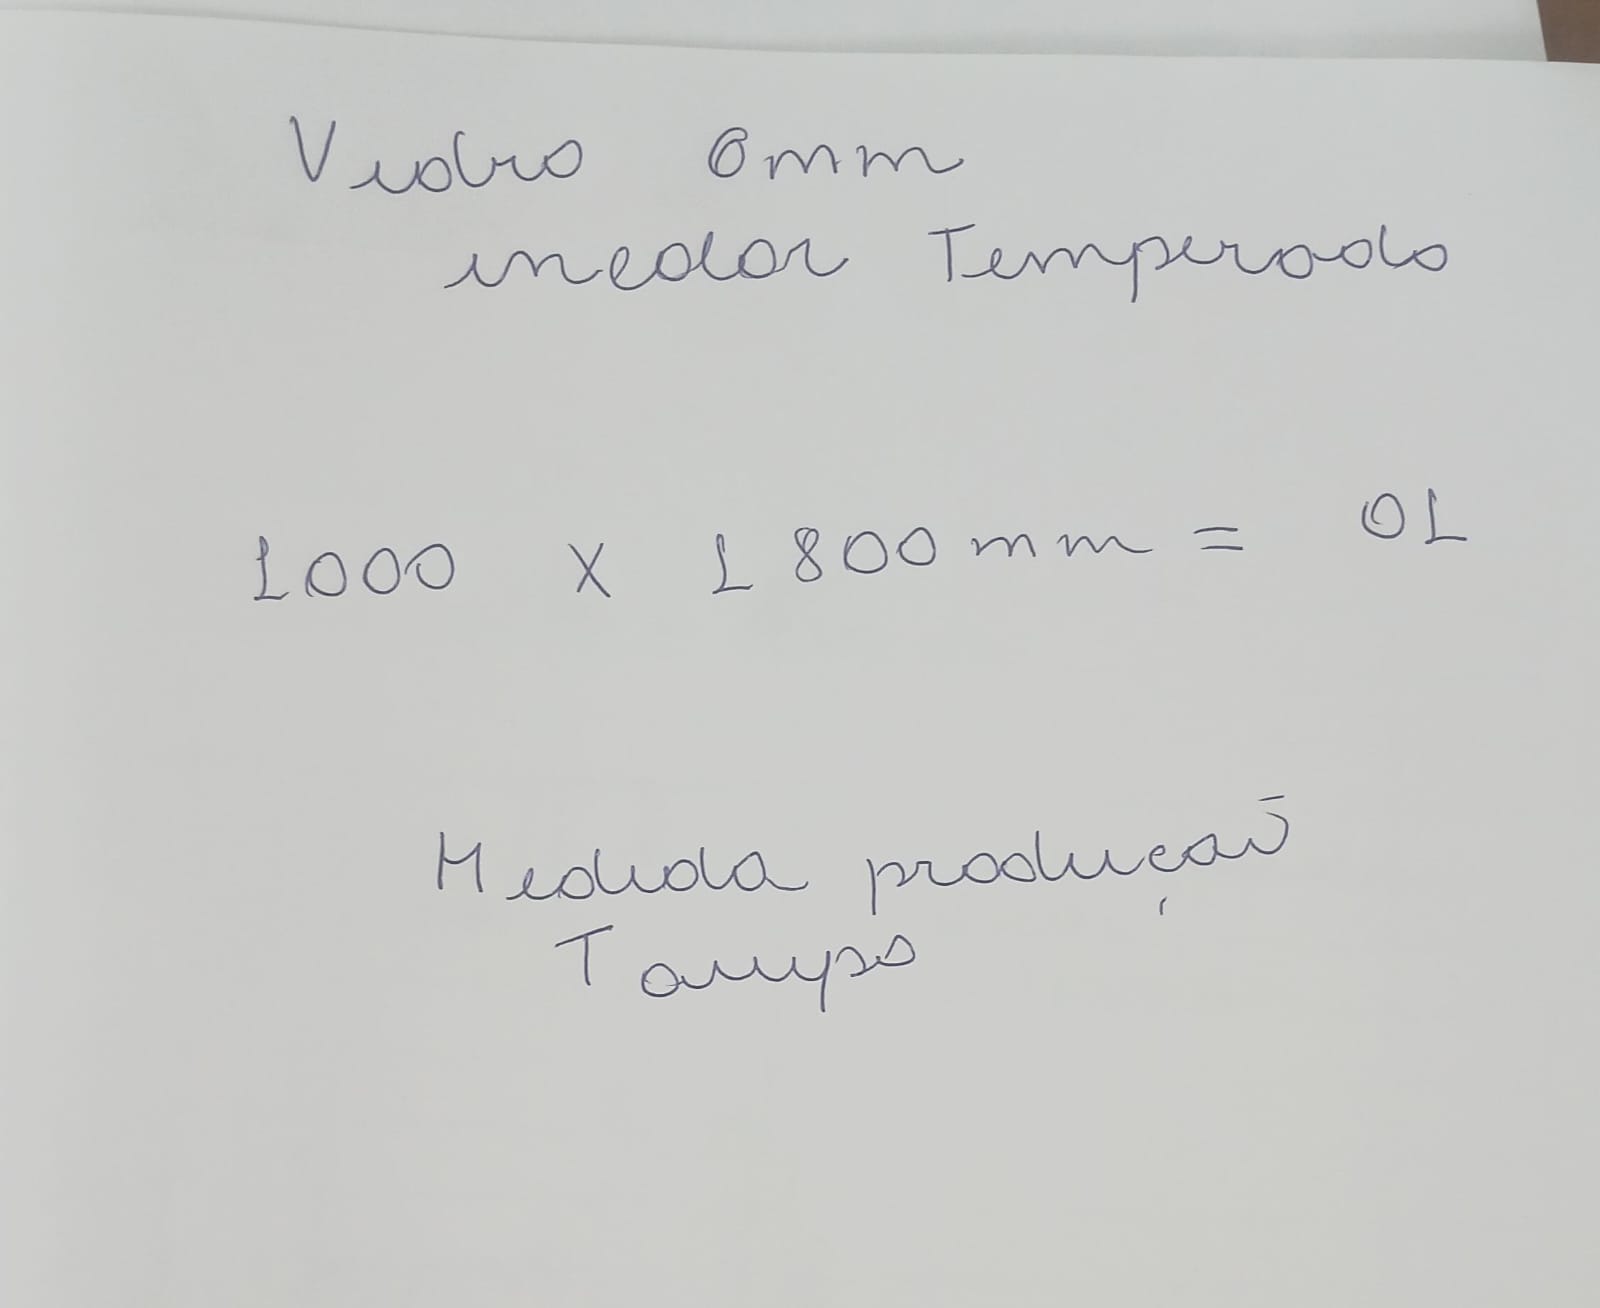 Vidro 6mm
incolor Temperado
1000 X 1800mm = 01
Medida produção
Tampo